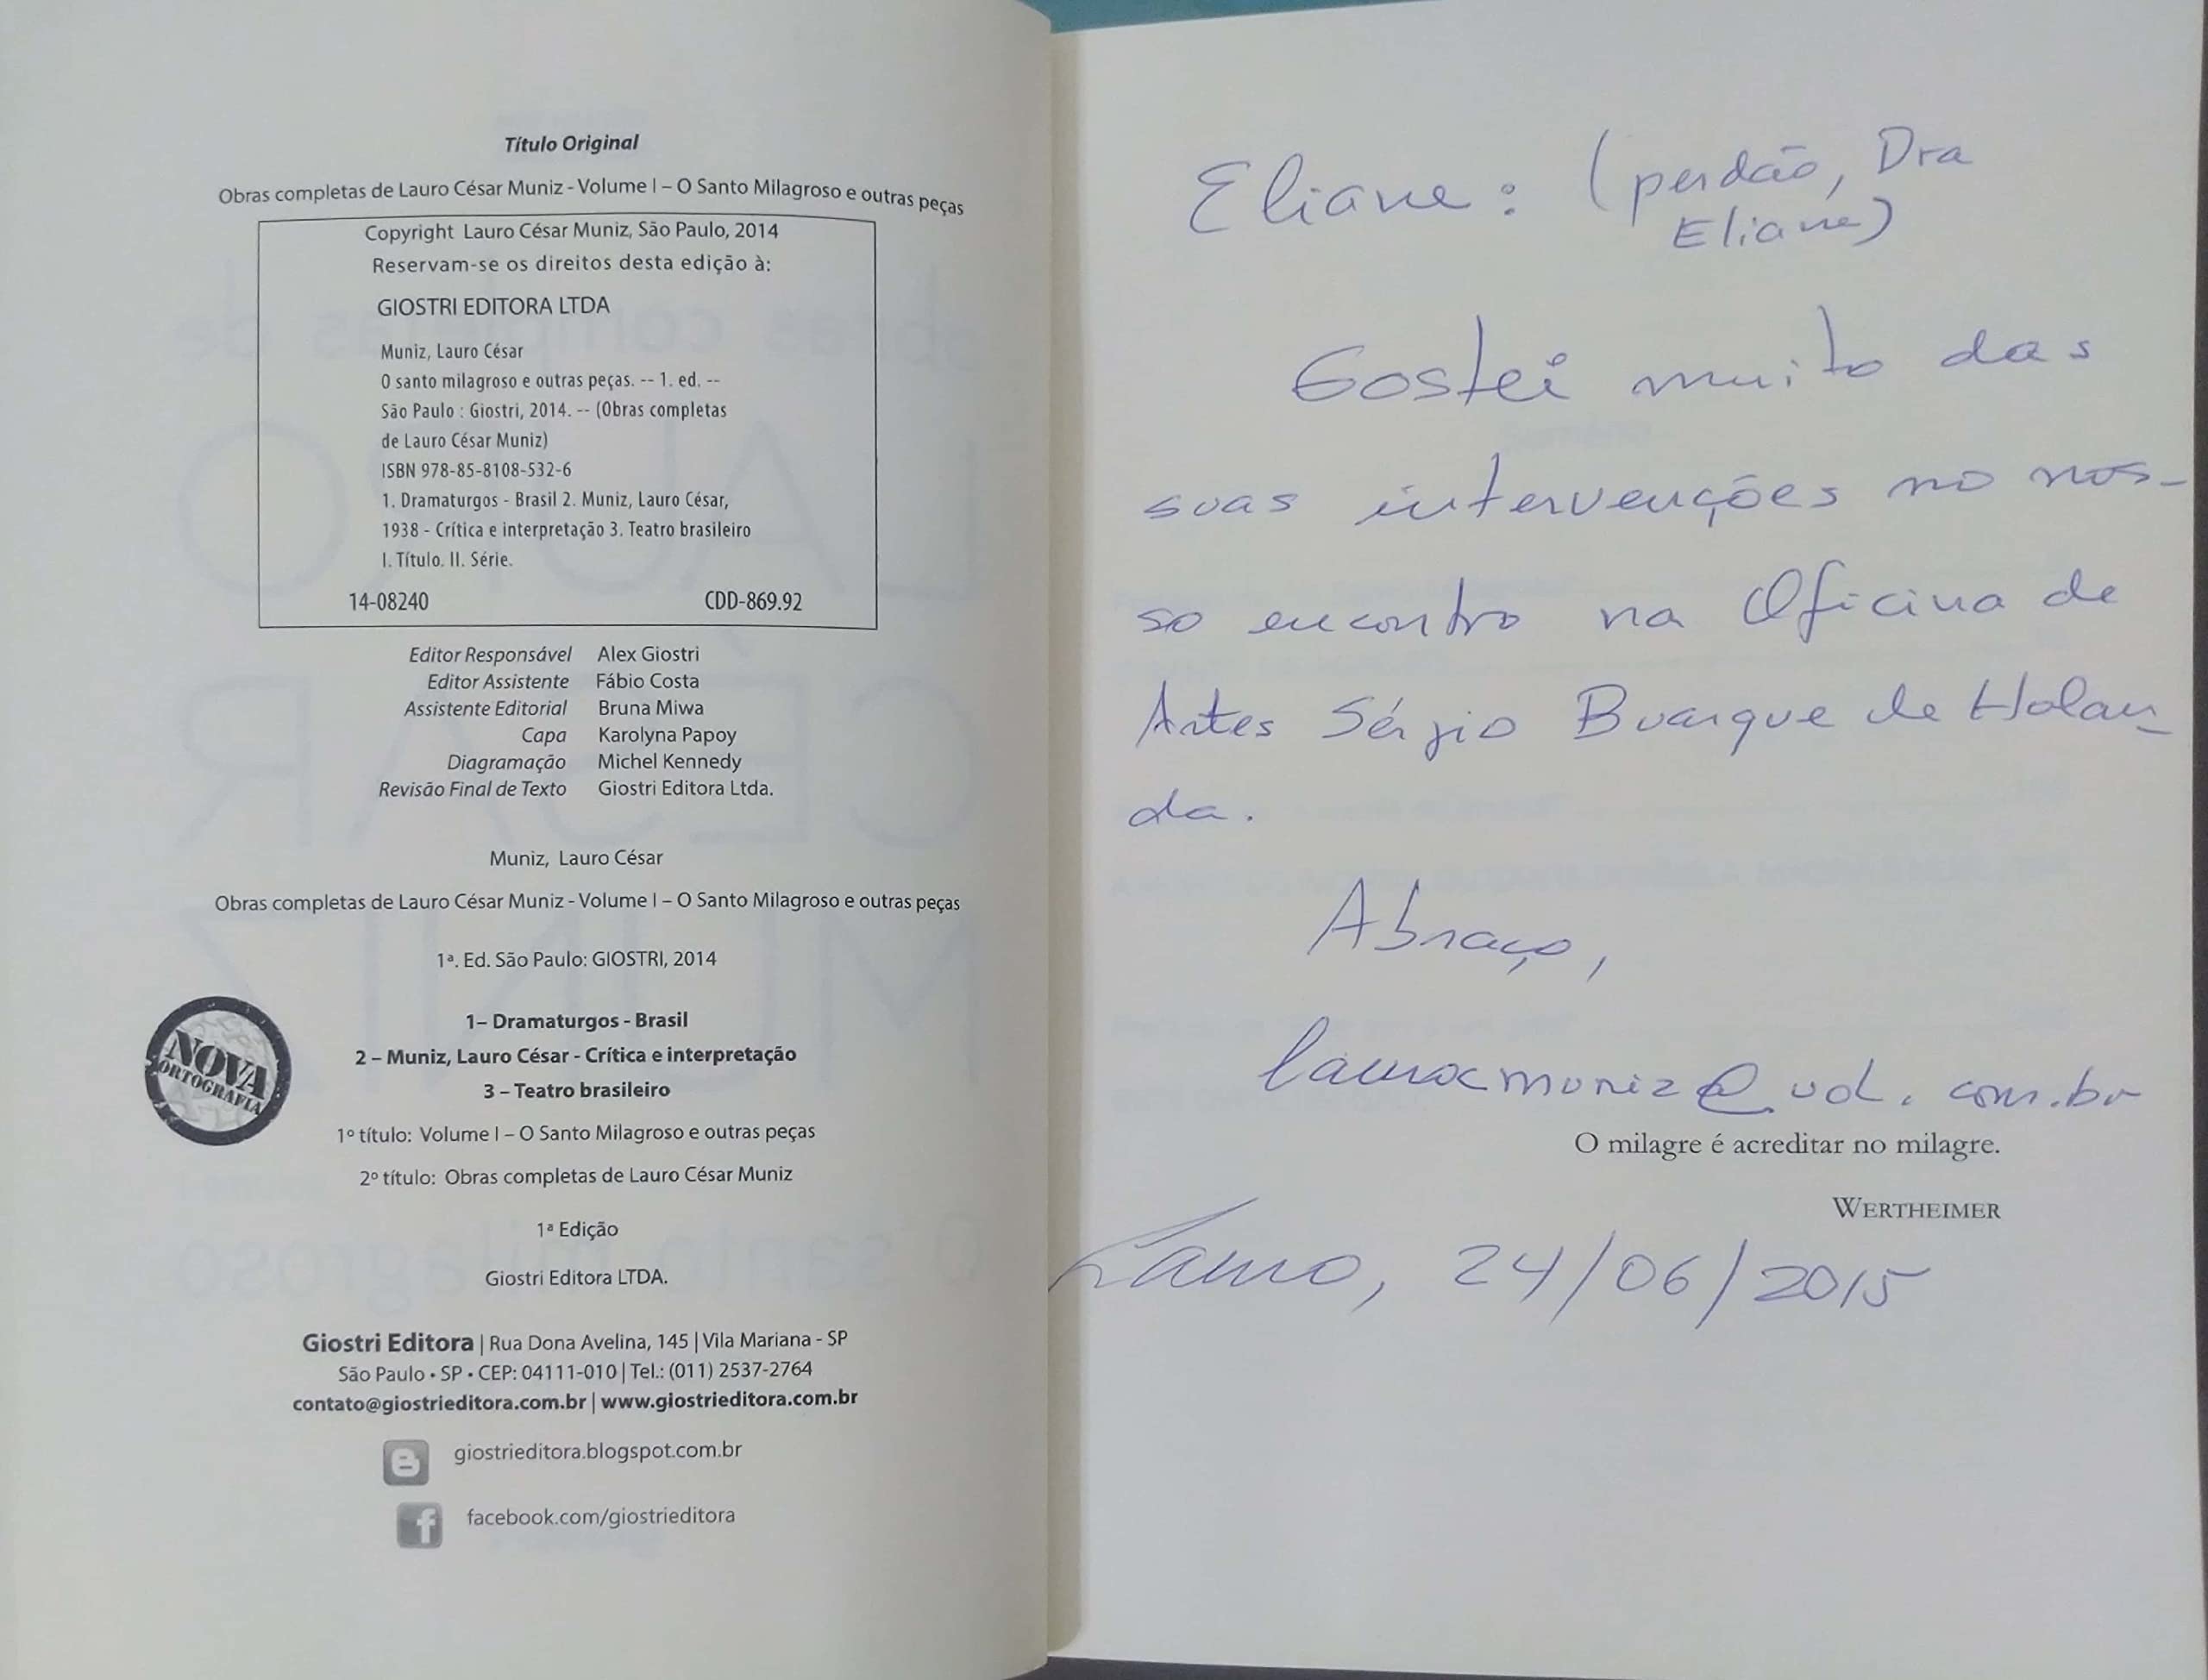 Título Original
Obras completas de Lauro César Muniz - Volume I – O Santo Milagroso e outras peças
Copyright Lauro César Muniz, São Paulo, 2014
Reservam-se os direitos desta edição à:
GIOSTRI EDITORA LTDA
Muniz, Lauro César
O santo milagroso e outras peças. -- 1. ed. --
São Paulo : Giostri, 2014. -- (Obras completas
de Lauro César Muniz)
ISBN 978-85-8108-532-6
1. Dramaturgos - Brasil 2. Muniz, Lauro César,
1938 - Crítica e interpretação 3. Teatro brasileiro
I. Título. II. Série.
14-08240 CDD-869.92
Editor Responsável Alex Giostri
Editor Assistente Fábio Costa
Assistente Editorial Bruna Miwa
Capa Karolyna Papoy
Diagramação Michel Kennedy
Revisão Final de Texto Giostri Editora Ltda.
Muniz, Lauro César
Obras completas de Lauro César Muniz - Volume I – O Santo Milagroso e outras peças
1ª. Ed. São Paulo: GIOSTRI, 2014
NOVA
ORTOGRAFIA
1– Dramaturgos - Brasil
2 – Muniz, Lauro César - Crítica e interpretação
3 – Teatro brasileiro
1º título: Volume I – O Santo Milagroso e outras peças
2º título: Obras completas de Lauro César Muniz
1ª Edição
Giostri Editora LTDA.
Giostri Editora | Rua Dona Avelina, 145 | Vila Mariana - SP
São Paulo • SP • CEP: 04111-010 | Tel.: (011) 2537-2764
contato@giostrieditora.com.br | www.giostrieditora.com.br
giostrieditora.blogspot.com.br
facebook.com/giostrieditora
Eliane: (perdão, Dra
Eliane)
Gostei muito das
suas intervenções no nos-
so encontro na Oficina de
Artes Sérgio Buarque de Holan-
da.
Abraço,
laurocmuniz@uol.com.br
O milagre é acreditar no milagre.
WERTHEIMER
Lauro, 24/06/2015